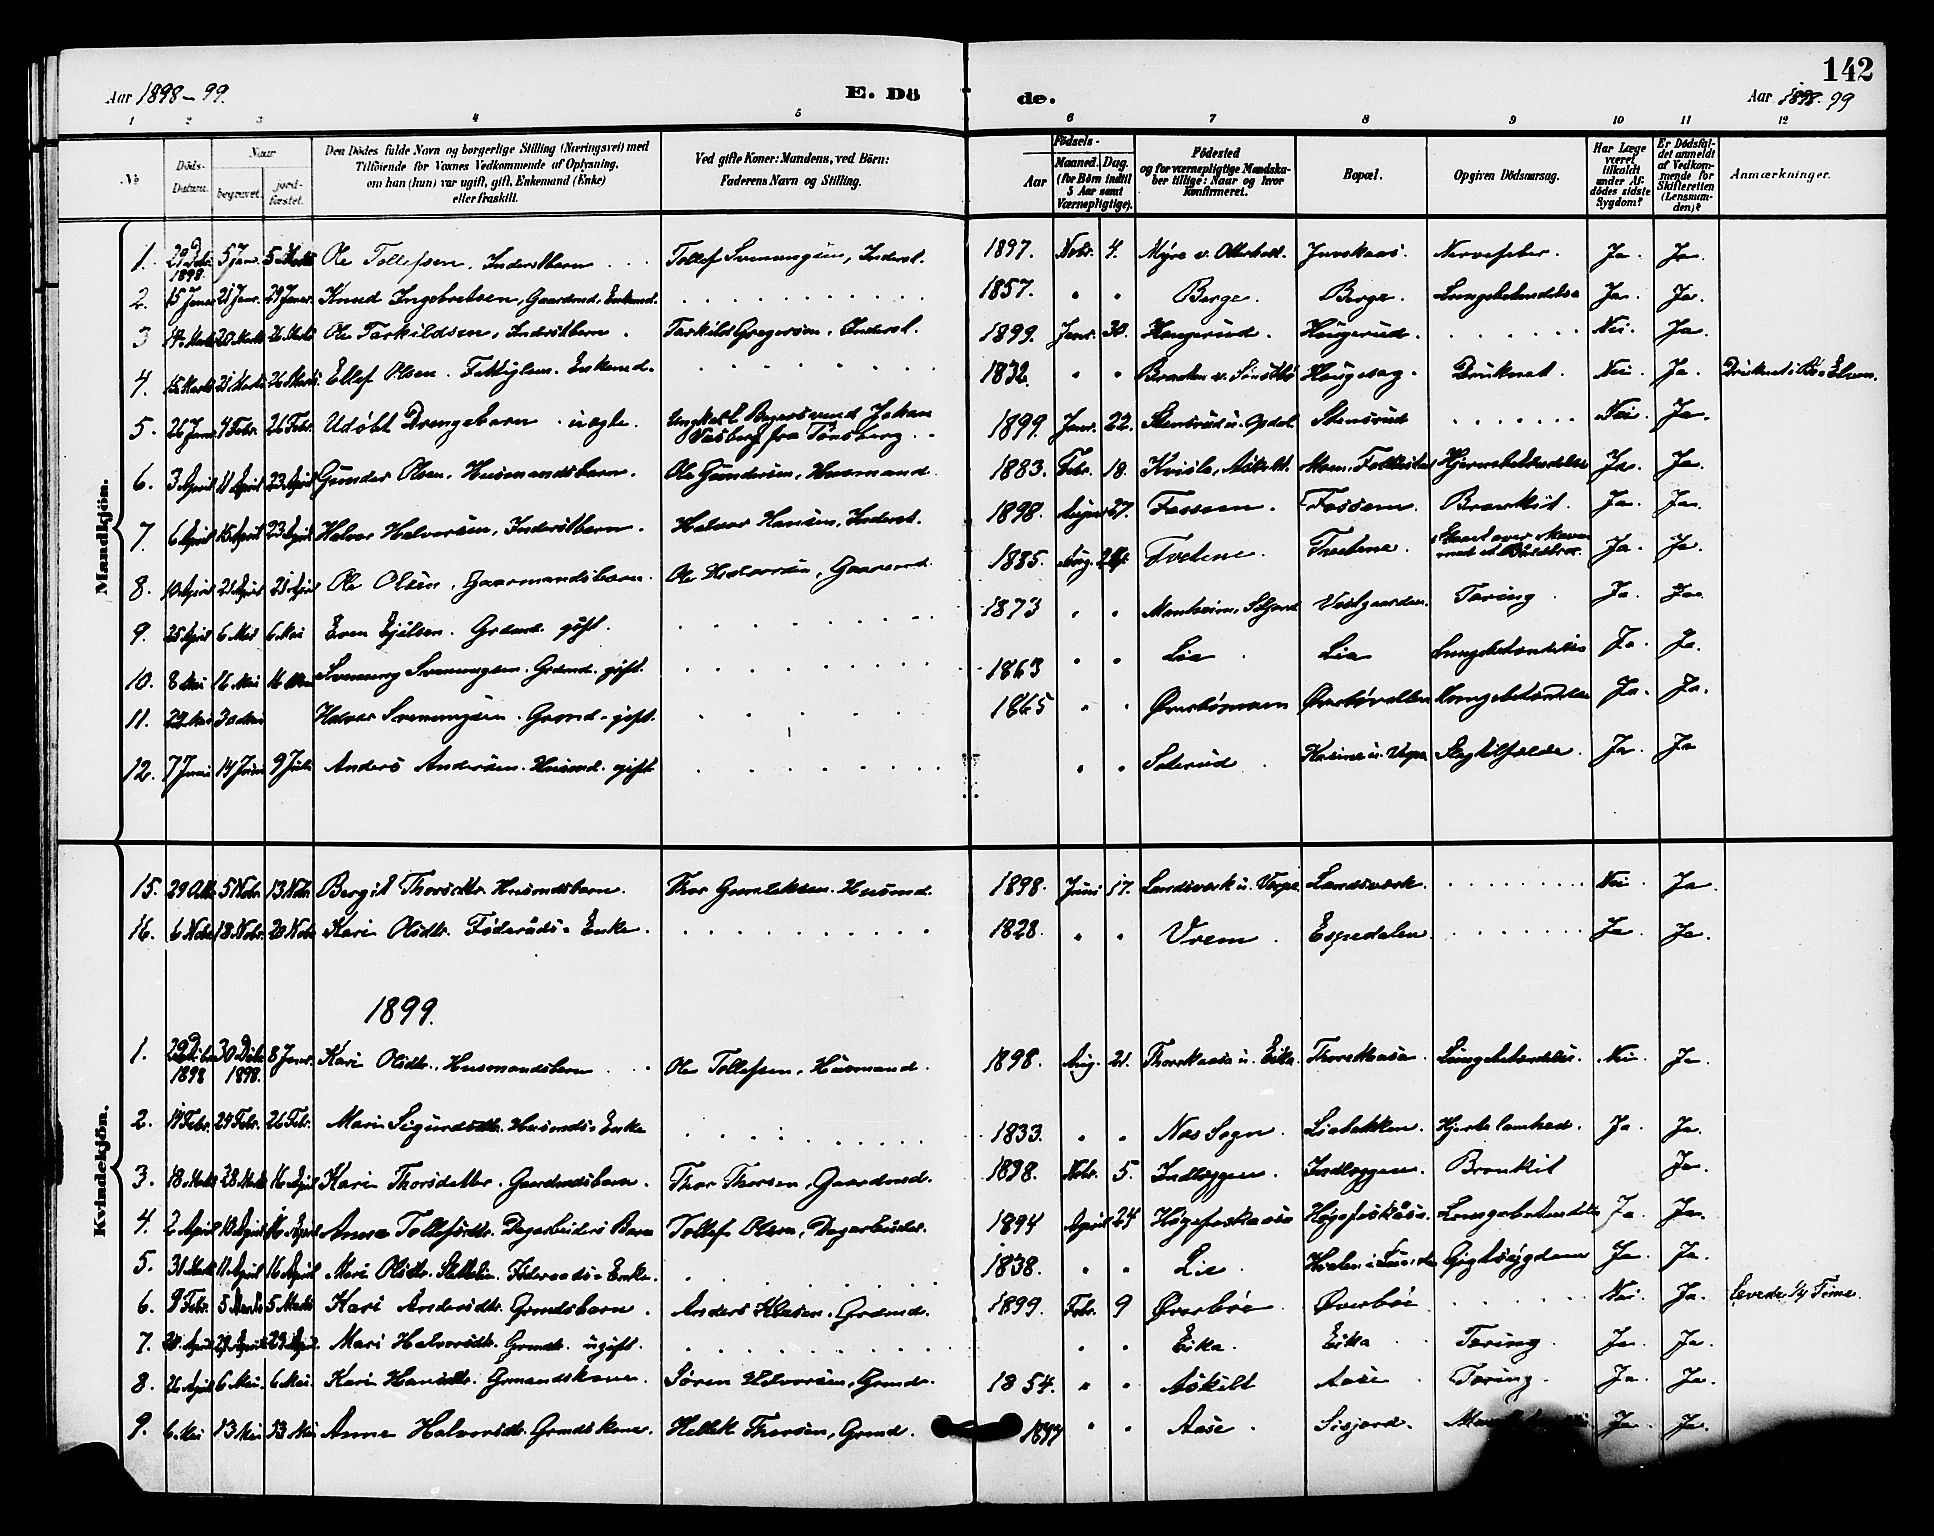 142
Aar 1898-99.
E. Dö de.
Aar 1898-99
1 2 3 4 5 6 7 8 9 10 11 12
No
Döds-Datum.
Naar
begravet.
jord-fæstet.
Den Dödes fulde Navn og borgerlige Stilling (Næringsvei) med
Tilföiende for Voxnes Vedkommende af Oplysning,
om han (hun) var ugift, gift, Enkemand (Enke)
eller fraskilt.
Ved gifte Koner: Mandens, ved Börn:
Faderens Navn og Stilling.
Födsels-
Aar
Maaned. Dag.
(for Børn indtil
5 Aar samt
Værnepligtige).
Födested
og for værnepligtige Mandskaber tillige: Naar og hvor
konfirmeret.
Bopæl.
Opgiven Dödsaarsag.
Har Læge været tilkaldt under Afdödes sidste Sygdom?
Er Dödsfaldet anmeldt af Vedkommende for Skifteretten (Lensmanden)?
Anmærkninger.
Mandkjön.
1. 29 Dcbr. 1898. 5 Janr. 5 Marts Ole Tollefsen. Inderstbarn Tollef Svenungsen, Inderst. 1897. Novbr. 4. Myre v. Otterholt. Juvskaas. Nervefeber. Ja. Ja.
2. 15 Janr 21 Janr. 29 Janr. Knud Ingebretsen, Gaardmd. Enkemd. 1857. " " Berge. Berge. Lungebetændelse Ja. Ja.
3 14 Marts 20 Marts 26 Marts Ole Tarkildsen, Inderstbarn. Tarkild Gregersen, Inderst. 1899. Janr. 30. Haugerud. Haugerud. Nei. Ja.
4. 15 Marts 21 Marts 26 Marts Ellef Olsen. Fattiglem. Enkemd. 1832. " " Haugesag. Druknet. Nei. Ja. Druknet i Bø Elven.
5. 26 Janr 4 Febr. 26 Febr. Udöbt Drengebarn uægte. Ungkarl Bagersvend Johan
fra Tönsberg 1899. Janr. 22. Stensrud u. Opdal. Stensrud Nei. Ja.
6. 3 April 11 April 23 April Gunder Olsen, Husmandsbarn. Ole Gundersen, Husmand. 1883. Febr. 18. Kvisla, Askildt. Hjernebetændelse Ja. Ja.
7. 6 April 15 April 23 April Halvor Halvorsen, Inderstbarn. Halvor Hansen, Inderst. 1898. August 27. Fossem. Fossem. Bronkit. Ja. Ja.
8. 10 April 21 April 21 April Ole Olsen, Gaarmandsbarn. Ole Halvorsen, Gaarmd. 1885. Aug. 24. Tvetene. Tvetene. Ja. Ja.
9. 25 April 6 Mai 6 Mai Even Ejulsen. Grdmd. gift. 1873 " " Manheim, Seljord Vestgaarden. Tæring. Ja. Ja.
10. 8 Mai 16 Mai 16 Mai Svenung Svenungsen. Grdmd. gift. 1863 " " Lia Lia Lungebetændelse Ja. Ja.
11. 22 Mai 30 Mai Halvor Svenungsen. Grdmd. gift. 1865 " " Lungebetændelse Ja. Ja.
12. 7 Juni 14 Juni 9 Juli Anders Andersen. Husmd. gift " " Solerud Slagtilfælde. Ja. Ja
Kvindekjön.
15. 29 Okt. 5 Nobr. 13 Nobr. Bergit Thorsdtr. Husmdsbarn. Thor Gunleiksen. Husmd. 1898. Juni 17. Landsverk u. Verpe. Landsverk. Nei. Ja.
16. 6 Nobr. 18 Nobr. 20 Nobr. Kari Olsdtr. Föderåds-Enke. 1828. " " Vrem. Espedalen. Ja. Ja.
1899.
1. 29 Dcbr 1898 30 Dcbr. 1898. 8 Janr. Kari Olsdtr. Husmandsbarn Ole Tollefsen, Husmand. 1898. Aug. 21. Thorskaasa u. Eika. Thorskaasa. Lungebetændelse. Nei. Ja.
2. 14 Febr. 24 Febr. 26 Febr. Mari Sigurdsdtr. Husmds-Enke 1833. " " Næs Sogn. Liabakken. Hjertelamhed. Ja. Ja.
3. 18 Marts 28 Marts 16 April Kari Thorsdatter. Gaardmdsbarn. Thor Thorsen, Gaardmd. 1898. Nobr. 5. Indlæggen. Indlæggen. Bronkit Ja.
4. 2 April 13 April 16 April Anne Tollefsdtr. Dagarbeiders Barn Tollef Olsen, Dagarbeider. 1894 April 24 Høgefoskaasa Høgefoskåsa. Lungebetændelse Ja. Ja.
5. 31 Marts 11 April 16 April Mari Olsdtr. Föderaads-Enke. 1838. " " Lie Gigtsygdom Ja. Ja.
6. 9 Febr. 5 Marts 5 Marts Kari Andersdtr. Grmdsbarn. Anders Klasen. Grdmd. 1899. Febr. 9 Øverbøe Øverbøe Nei. Ja. levede 1/4 Time.
7. 20 April 29 April 29 April. Mari Halvorsdtr. Grmdt. ugift. " " Eika. Eika Tæring. Ja. Ja.
8. 26 April 6 Mai. 6 Mai. Kari Hansdtr. Grmandskone. Sören Halvorsen, Grmd. 1854. " " Askilt Aase Tæring. Ja. Ja.
9. 6 Mai 13 Mai 13 Mai Anne Halvorsdtr. Grmdskone. Hellek Thorsen, Grmd. " " Aase Sisjord. Ja. Ja.